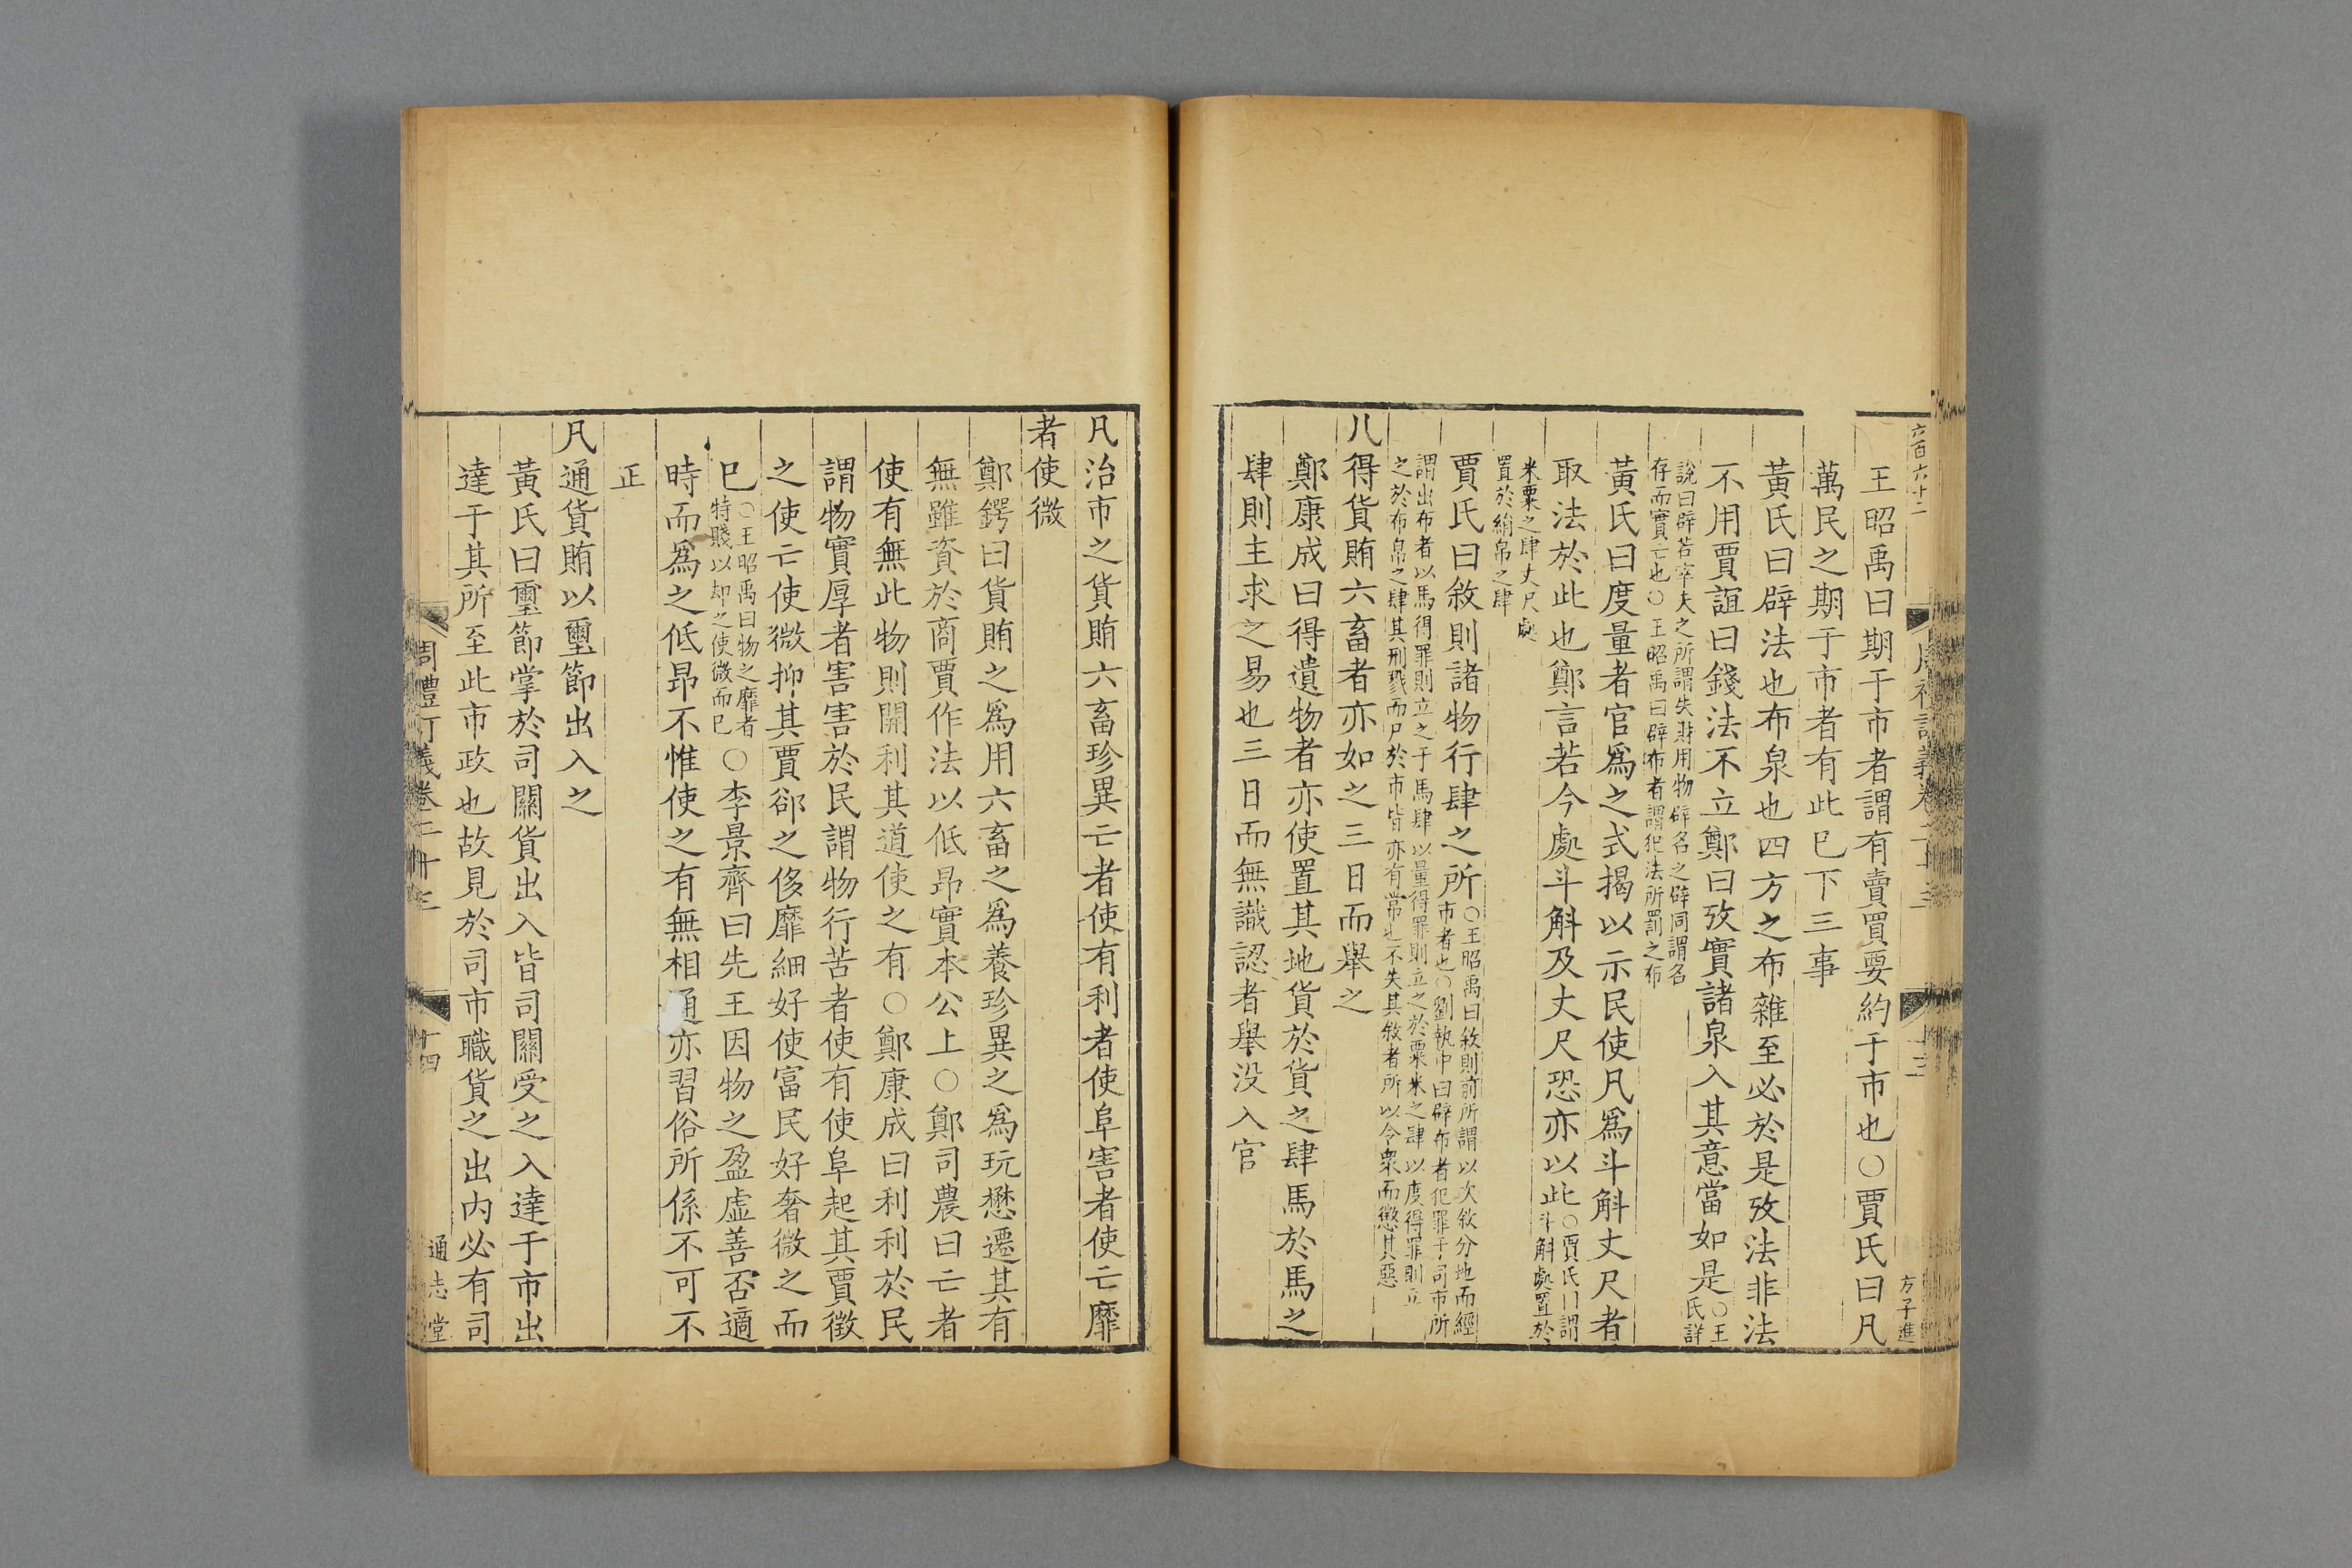 六百六十二
方子進
王昭禹曰期于市者謂有賣買要約于市也○賈氏曰凡
萬民之期于市者有此巳下三事
黃氏曰辟法也布泉也四方之布雜至必於是攷法非法
不用賈誼曰錢法不立鄭曰攷實諸泉入其意當如是○王氏詳
說曰辟若宰夫之所謂失財用物辟名之辟同謂名
存而實亡也○王昭禹曰辟布者謂犯法所罰之布
黃氏曰度量者官爲之式揭以示民使凡爲斗斛丈尺者
取法於此也鄭言若今處斗斛及丈尺恐亦以此○賈氏曰謂斗斛處置於
米粟之肆丈尺處
置於絹帛之肆
賈氏曰敘則諸物行肆之所○王昭禹曰敘則前所謂以次敘分地而經市者也○劉執中曰辟布者犯罪于司市所
謂出布者以馬得罪則立之于馬肆以量得罪則立之於粟米之肆以度得罪則立
之於布帛之肆其刑戮而尸於市皆亦有常也不失其敘者所以令衆而懲其惡
凡得貨賄六畜者亦如之三日而舉之
鄭康成曰得遺物者亦使置其地貨於貨之肆馬於馬之
肆則主求之易也三日而無識認者舉没入官
凡治市之貨賄六畜珍異亡者使有利者使阜害者使亡靡
者使微
鄭鍔曰貨賄之爲用六畜之爲養珍異之爲玩懋遷其有
無雖資於商賈作法以低昂實本公上○鄭司農曰亡者
使有無此物則開利其道使之有○鄭康成曰利利於民
謂物實厚者害害於民謂物行苦者使有使阜起其賈徵
之使亡使微抑其賈郤之侈靡細好使富民好奢微之而
巳○王昭禹曰物之靡者特賤以却之使微而巳○李景齊曰先王因物之盈虛善否適
時而爲之低昂不惟使之有無相通亦習俗所係不可不
正
凡通貨賄以璽節出入之
黃氏曰璽節掌於司關貨出入皆司關受之入達于市出
達于其所至此市政也故見於司市職貨之出内必有司
周禮訂義卷二十三
十四
通志堂